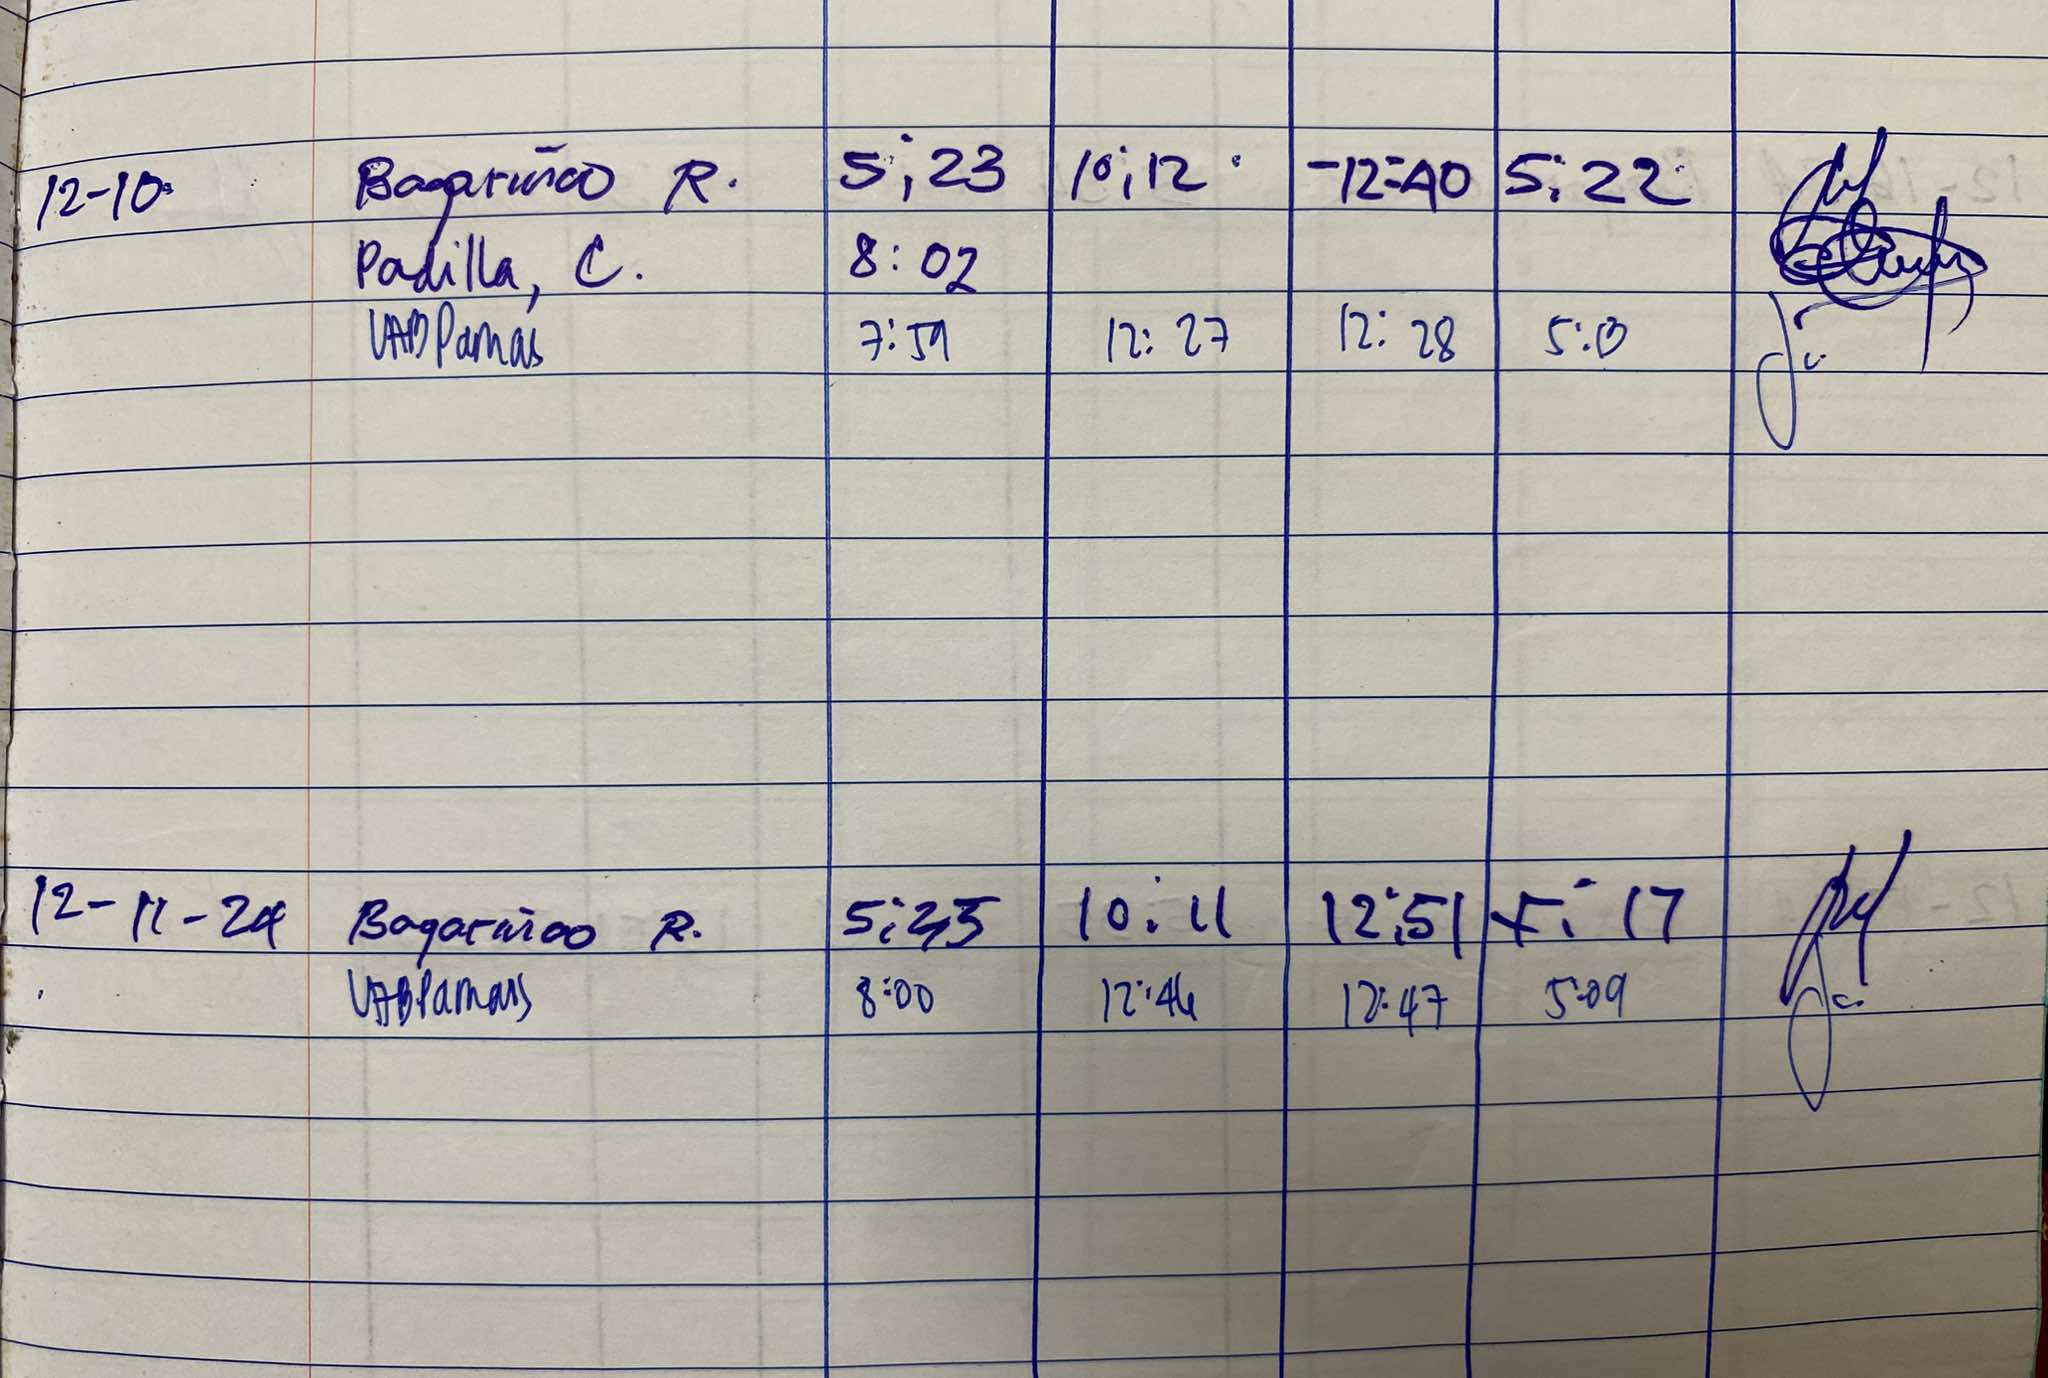 12-10 Bagariñao R. 5:23 10:12 -12:40 5:22
Padilla, C. 8:02
VABPamas 7:59 12:27 12:28
12-11-24 Bagariñao R. 5:25 10:11 12:51 5:17
VABPamas 8:00 12:46 12:47 5:09